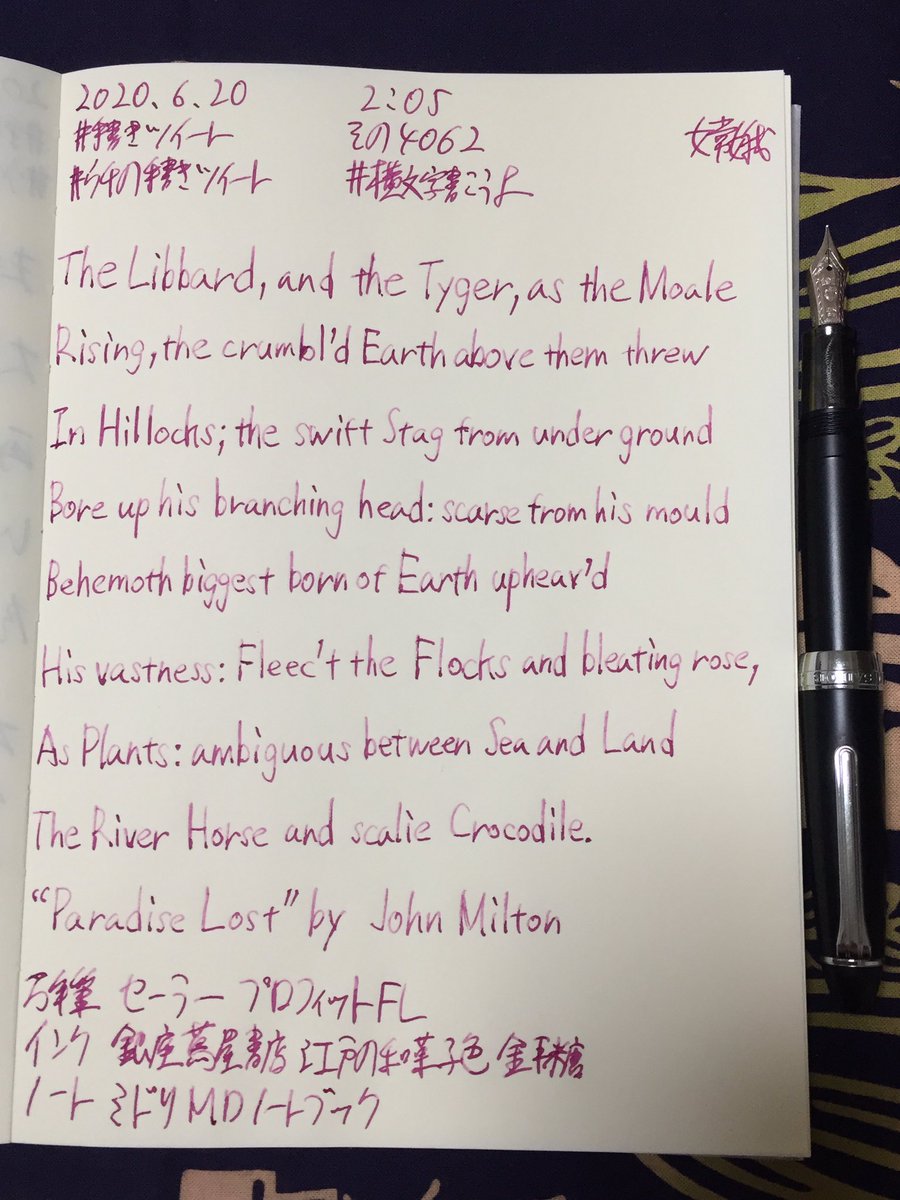 2020.6.20 2:05
#手書きツイート その4062 嫦娥
の手書きツイート #横文字書こうよ
The Libbard, and the Tyger, as the Moale
Rising, the crumbl'd Earth above them threw
In Hillocks; the swift Stag from under ground
Bore up his branching head: scarse from his mould
Behemoth biggest born of Earth upheav'd
His vastness: Fleec't the Flocks and bleating rose,
As Plants: ambiguous between Sea and Land
The River Horse and scalie Crocodile.
“Paradise Lost” by John Milton
万年筆 セーラー プロフィットFL
インク 銀座蔦屋書店 江戸の和菓子色 金平糖
ノート ミドリMDノートブック